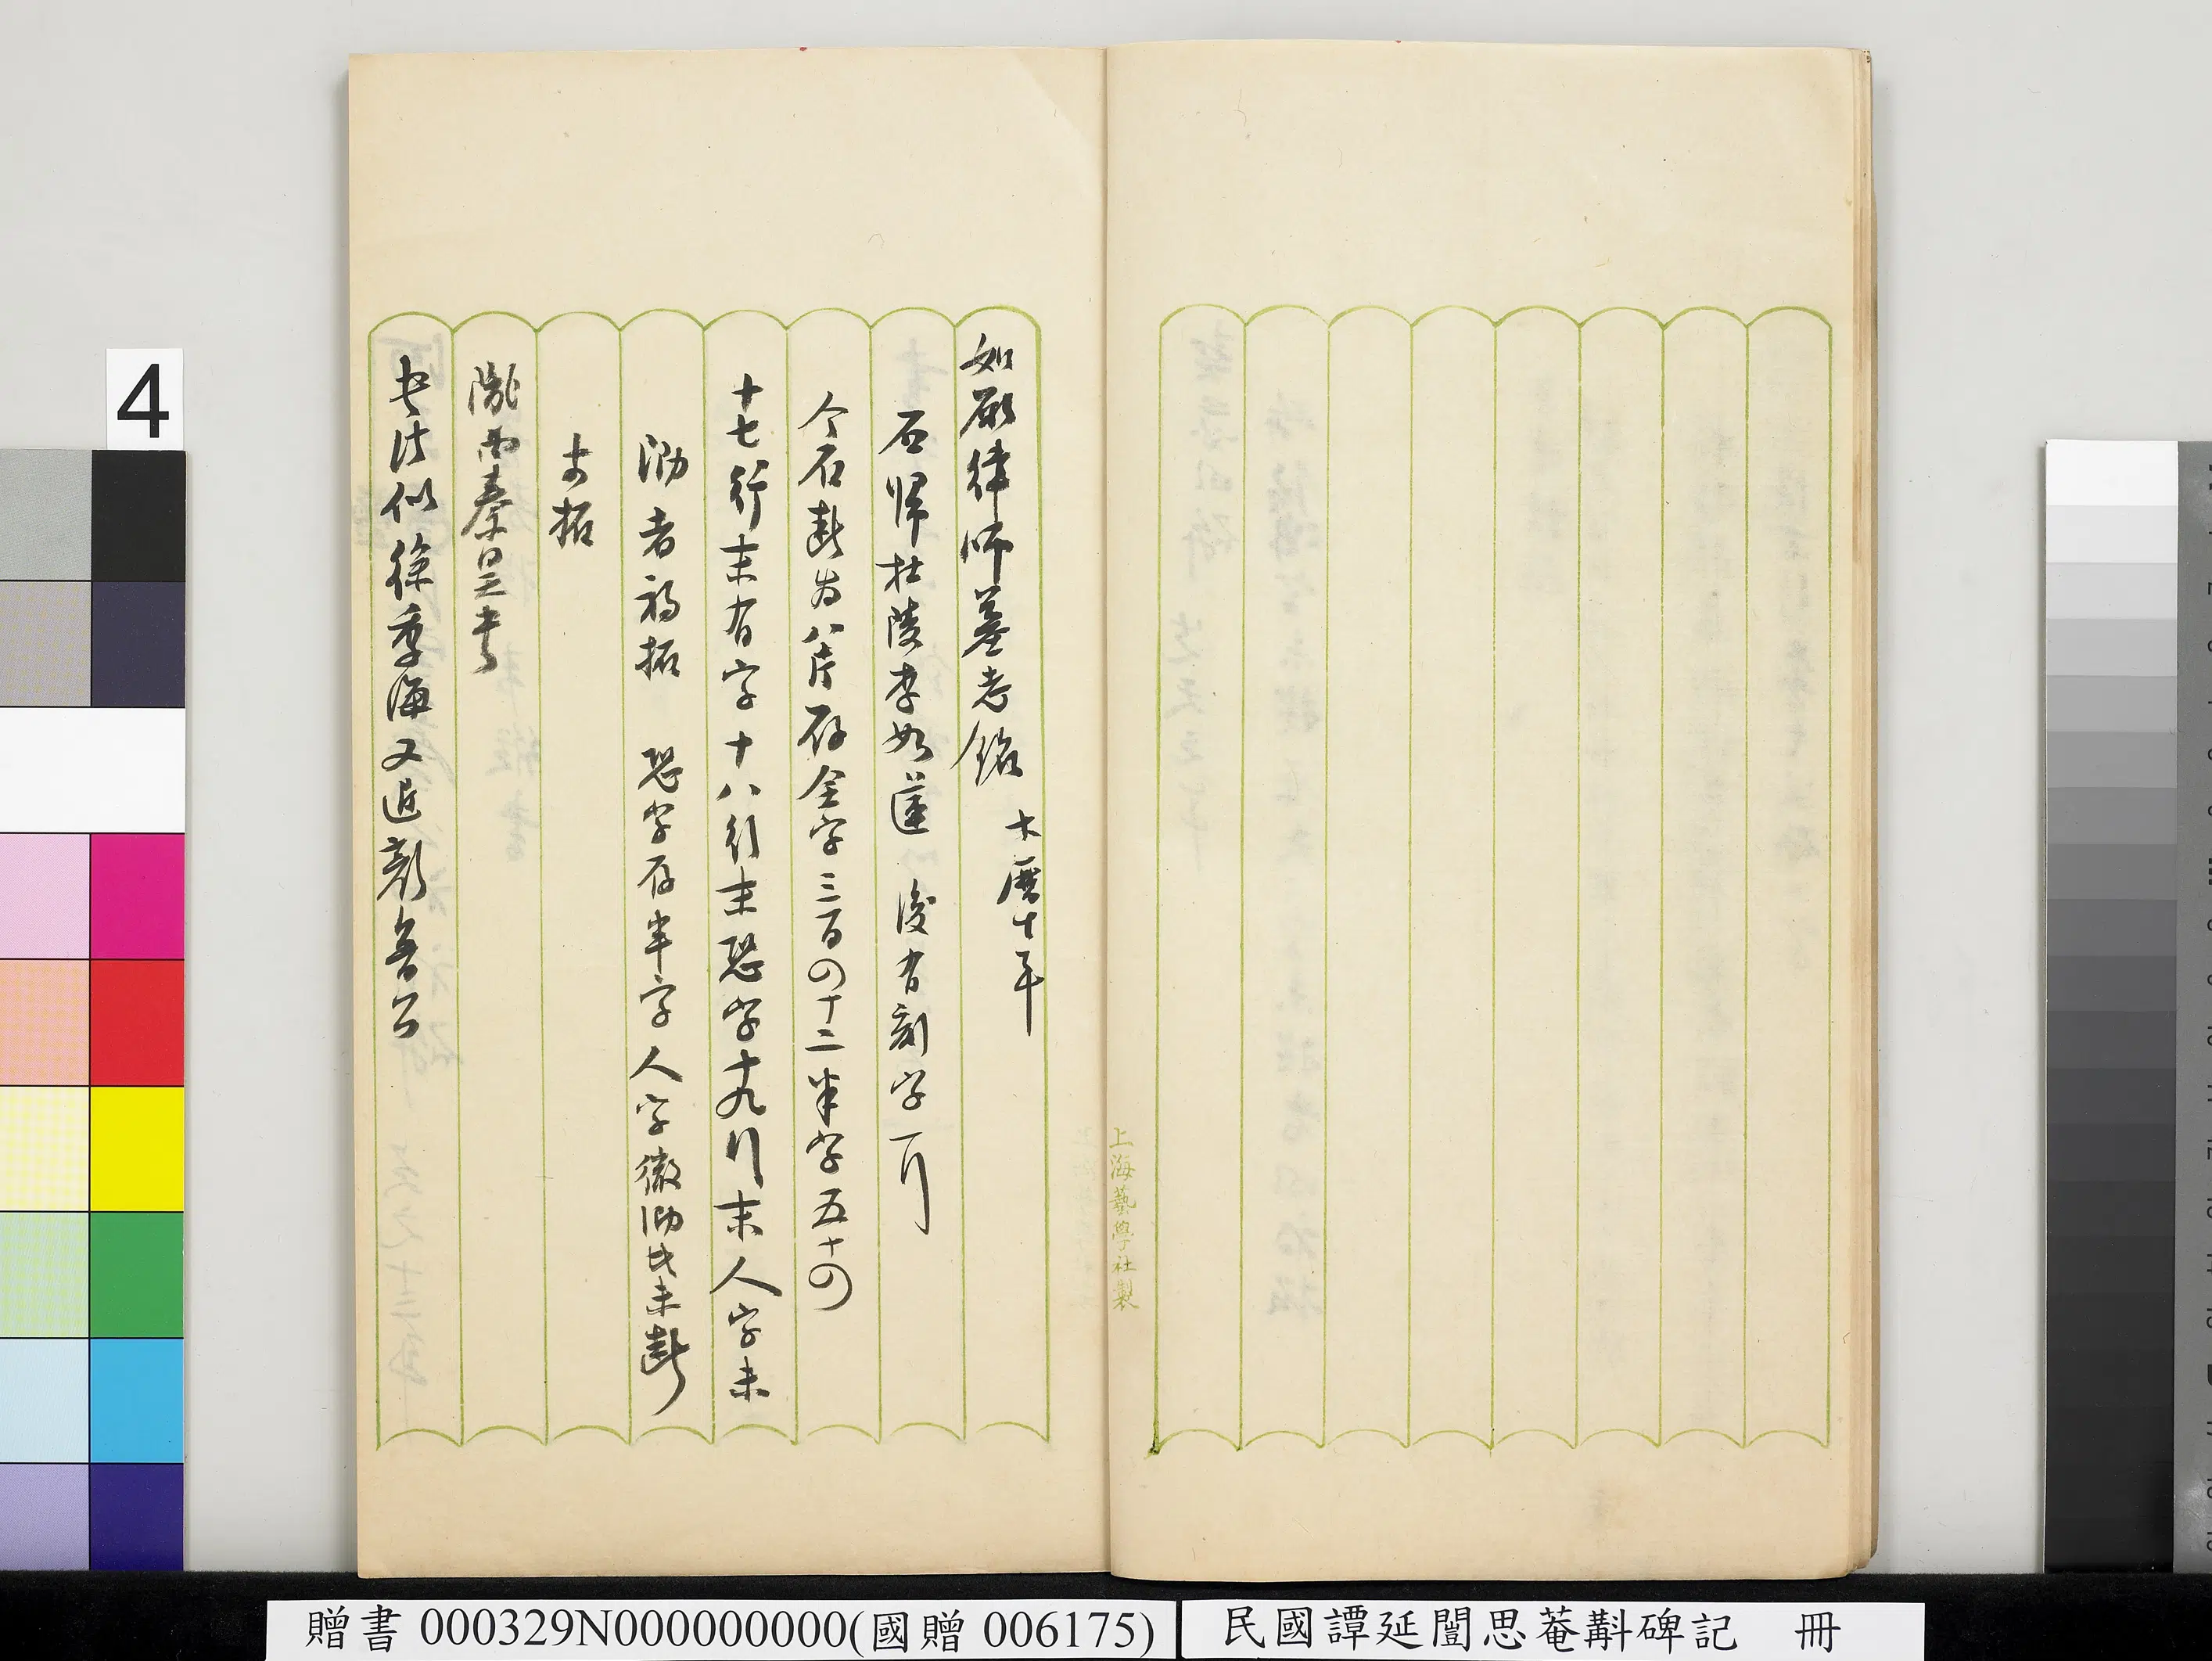 如願律師墓志銘 大曆十年
石歸杜陵李如蓮 後有刻字一行
今石斷為八片存全字三百四十二半字五十四
十七行末有字十八行末恐字十九行末人字未
泐者初拓 恐字存半字人字微泐此未斷
本拓
隴西秦昊書
書法似徐季海又近顏魯公
上海藝學社製
4
贈書 000329N000000000(國贈 006175)
民國譚延闓思菴斠碑記 冊